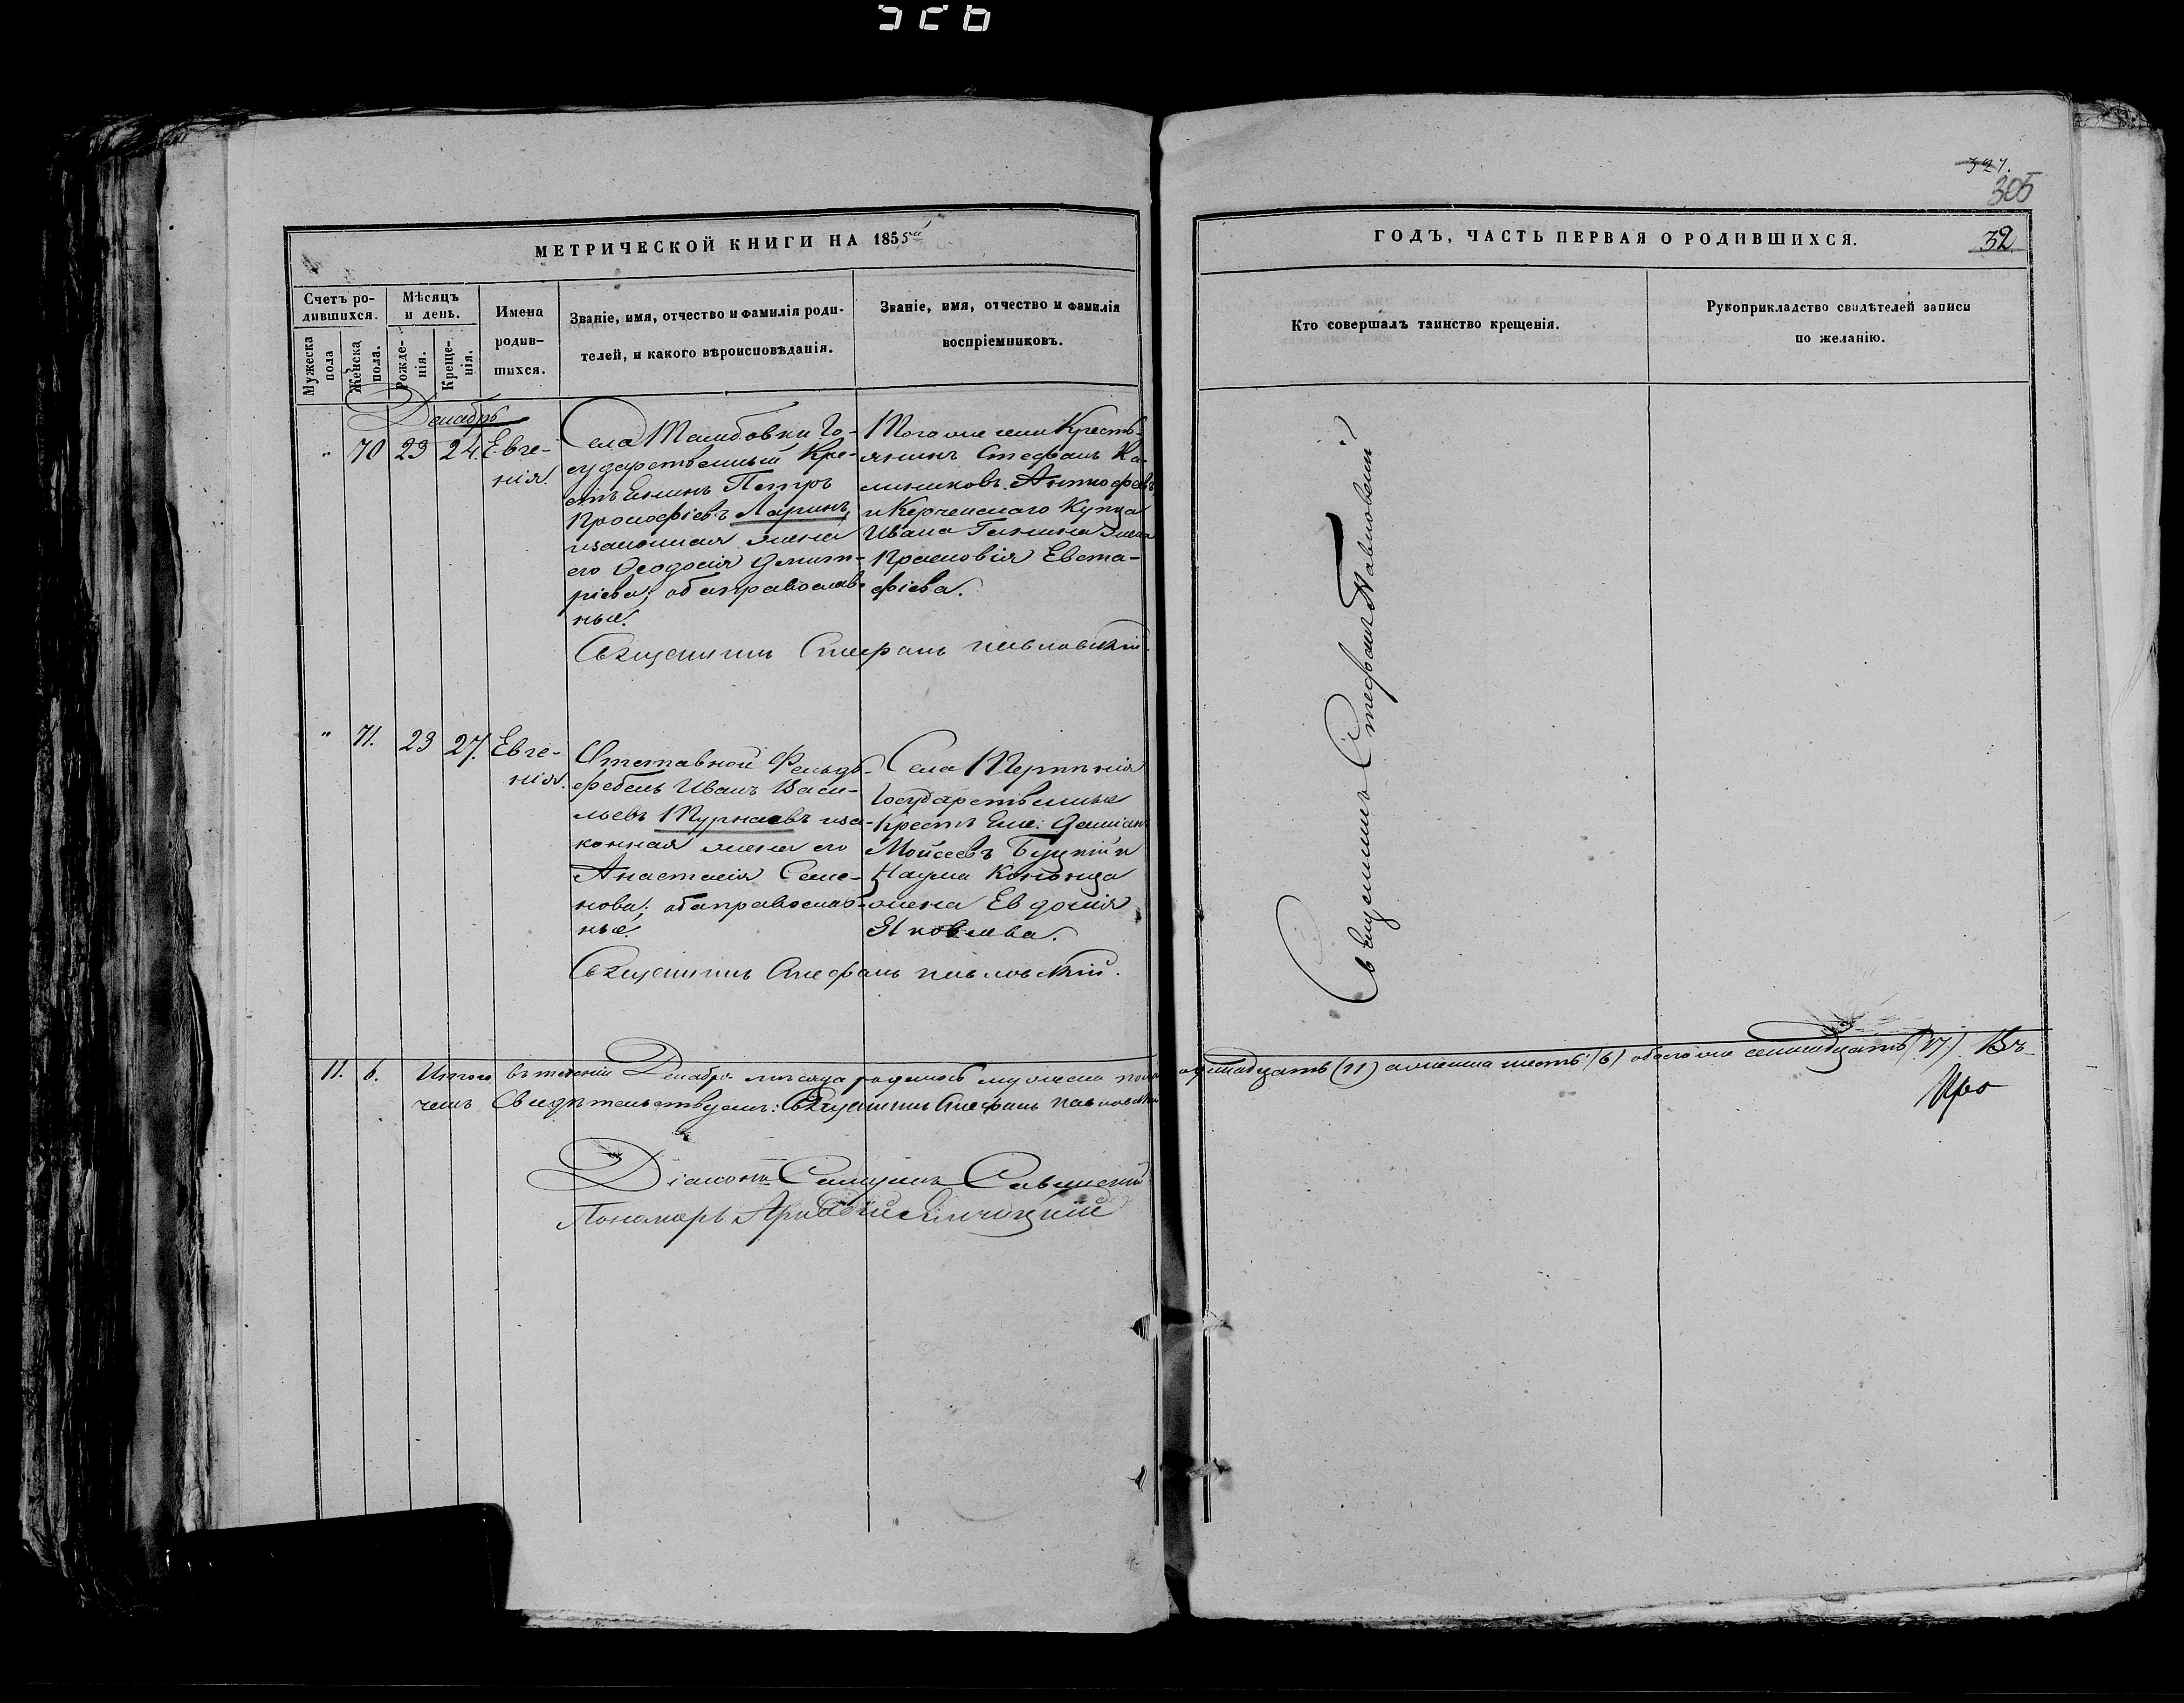 327.
305
МЕТРИЧЕСКОЙ КНИГИ НА 1855й
ГОДЪ, ЧАСТЬ ПЕРВАЯ О РОДИВШИХСЯ.
32
Счетъ ро-
дившихся.
Мужеска
пола
Женска
пола.
Мѣсяцъ
и день.
Рожде-
нія.
Креще-
нія.
Имена
родив-
шихся.
Званіе, имя, отчество и фамилія роди-
телей, и какого вѣроисповѣданія.
Званіе, имя, отчество и фамилія
воспріемниковъ.
Кто совершалъ таинство крещенія.
Рукоприкладство свидѣтелей записи
по желанію.
Декабрь
" 70 23 24. Евге-
нія.
Села Тамбовки Го-
сударственный Кре-
стьянинъ Петръ
Прокофіевъ Ларинъ,
изаконная жена
его Ѳеодосія Димит-
ріева; оба православ-
ные.
Того же села Кресть-
янинъ Стефанъ
и Керченскаго Купца
Ивана жена
Прасковія Евста-
фіева.
Священникъ Стефанъ Павловскій.
" 71. 23 27. Евге-
нія.
Отставной Фельд-
фебель Иванъ Васи-
льевъ Турнаевъ иза-
конная жена его
Анастасія Семе-
нова; оба православ-
ные.
Села Терпѣнія
Государственные
Крестьяне: Даміанъ
Мойсеевъ Буцкій и
Наума Конюнца
жена Евдокія
Яковлева.
Священникъ Стефанъ Павловскій.
Священникъ Стефанъ Павловскій
11. 6. Итого въ теченіи Декабря мѣсяца родилось мужеска пола одинадцать (11) а женска шесть (6) обоего же семнадцать (17) Въ
чемъ Свидѣтельствуемъ: Священникъ Стефанъ Павловскій
Діаконъ Самуилъ Савинскій
Пономарь